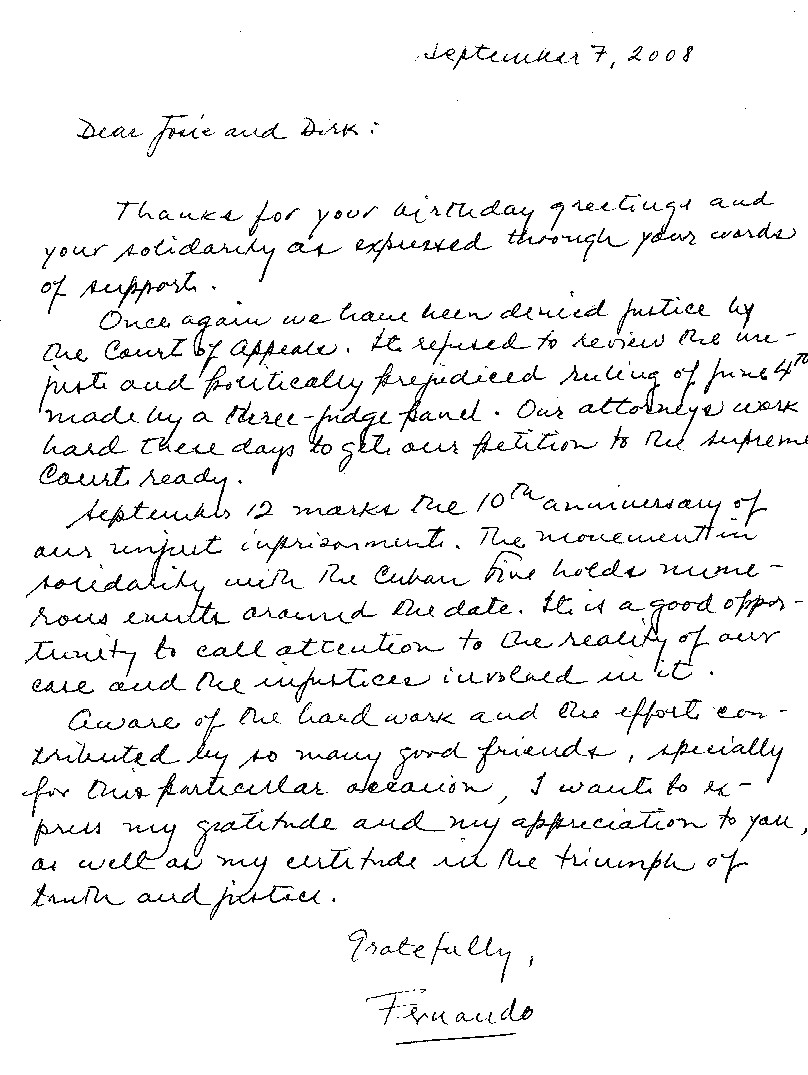 September 7, 2008
Dear Josie and Dirk:
Thanks for your birthday greetings and
your solidarity as expressed through your words
of support.
Once again we have been denied justice by
the Court of Appeals. It refused to review the un-
just and politically prejudiced ruling of June 4th
made by a three-judge panel. Our attorneys work
hard these days to get our petition to the Supreme
Court ready.
September 12 marks the 10th anniversary of
our unjust imprisonment. The movement in
solidarity with the Cuban Five holds nume-
rous events around the date. It is a good oppor-
tunity to call attention to the reality of our
case and the injustices involved in it.
Aware of the hard work and the effort con-
tributed by so many good friends, specially
for this particular occasion, I want to ex-
press my gratitude and my appreciation to you,
as well as my certitude in the triumph of
truth and justice.
Gratefully,
Fernando